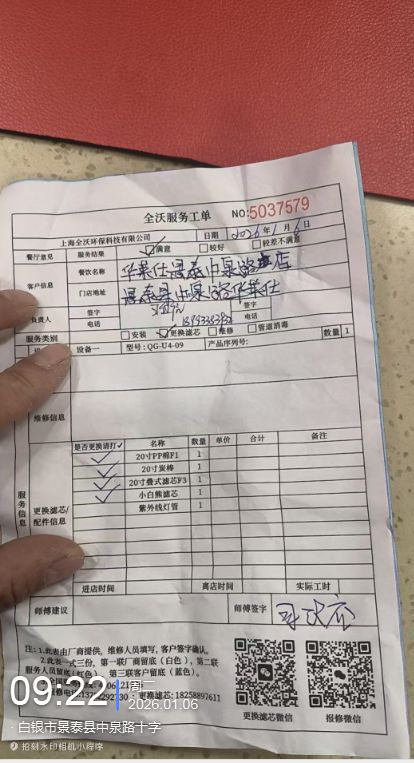 全沃服务工单 NO:5037579
上海全沃环保科技有限公司 日期 2026年1月6日
餐厅意见 服务结果 ☑满意 □较好 □较差不满意
客户信息 餐饮名称 华莱仕景泰中泉路店
门店地址 景泰县中泉路华莱仕
负责人 签字 签字
电话 电话
服务类别 □安装 ☑更换滤芯 □维修 □管道消毒 数量 1
设备一 型号:QG-U4-09 产品序列号:
维修信息
服务信息
更换滤芯/配件信息
是否更换请打✓ 名称 数量 单价 合计 备注
✓ 20寸PP棉F1 1
✓ 20寸炭棒 1
✓ 20寸叠式滤芯F3 1
✓ 小白熊滤芯 1
紫外线灯管 1
进店时间 离店时间 实际工时
师傅建议 师傅签字
注:1.此表由厂商提供,维修人员填写,客户签字确认。
2.此表一式三份,第一联厂商留底(白色),第二联
服务人员留底(红色),第三联客户留底(蓝色)。
更换滤芯:18258897611
更换滤芯微信 报修微信
09:22 周二
2026.01.06
·白银市景泰县中泉路十字
拾刻水印相机小程序